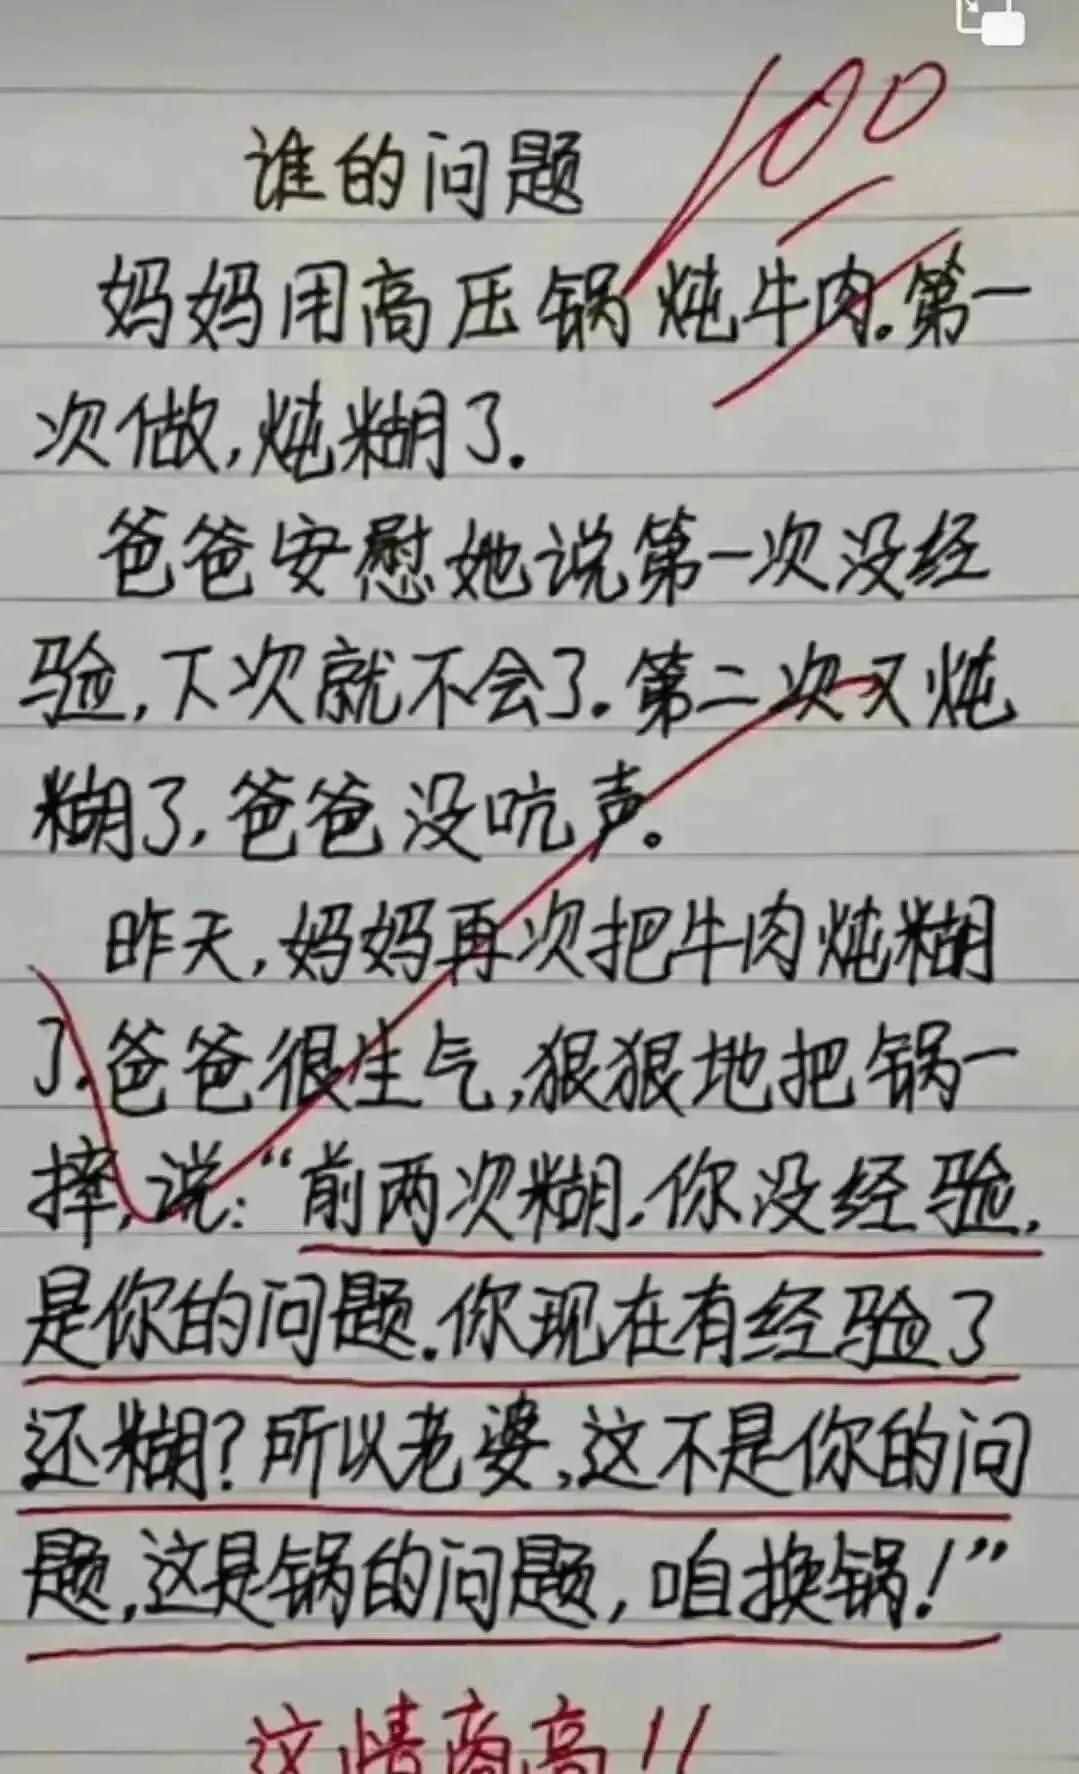 100
谁的问题
妈妈用高压锅炖牛肉.第一
次做,炖糊了.
爸爸安慰她说第一次没经
验,下次就不会了.第二次又炖
糊了,爸爸没吭声。
昨天,妈妈再次把牛肉炖糊
了.爸爸很生气,狠狠地把锅一
摔,说:“前两次糊,你没经验,
是你的问题.你现在有经验了
还糊?所以老婆,这不是你的问
题,这是锅的问题,咱换锅!”
这情商高!!